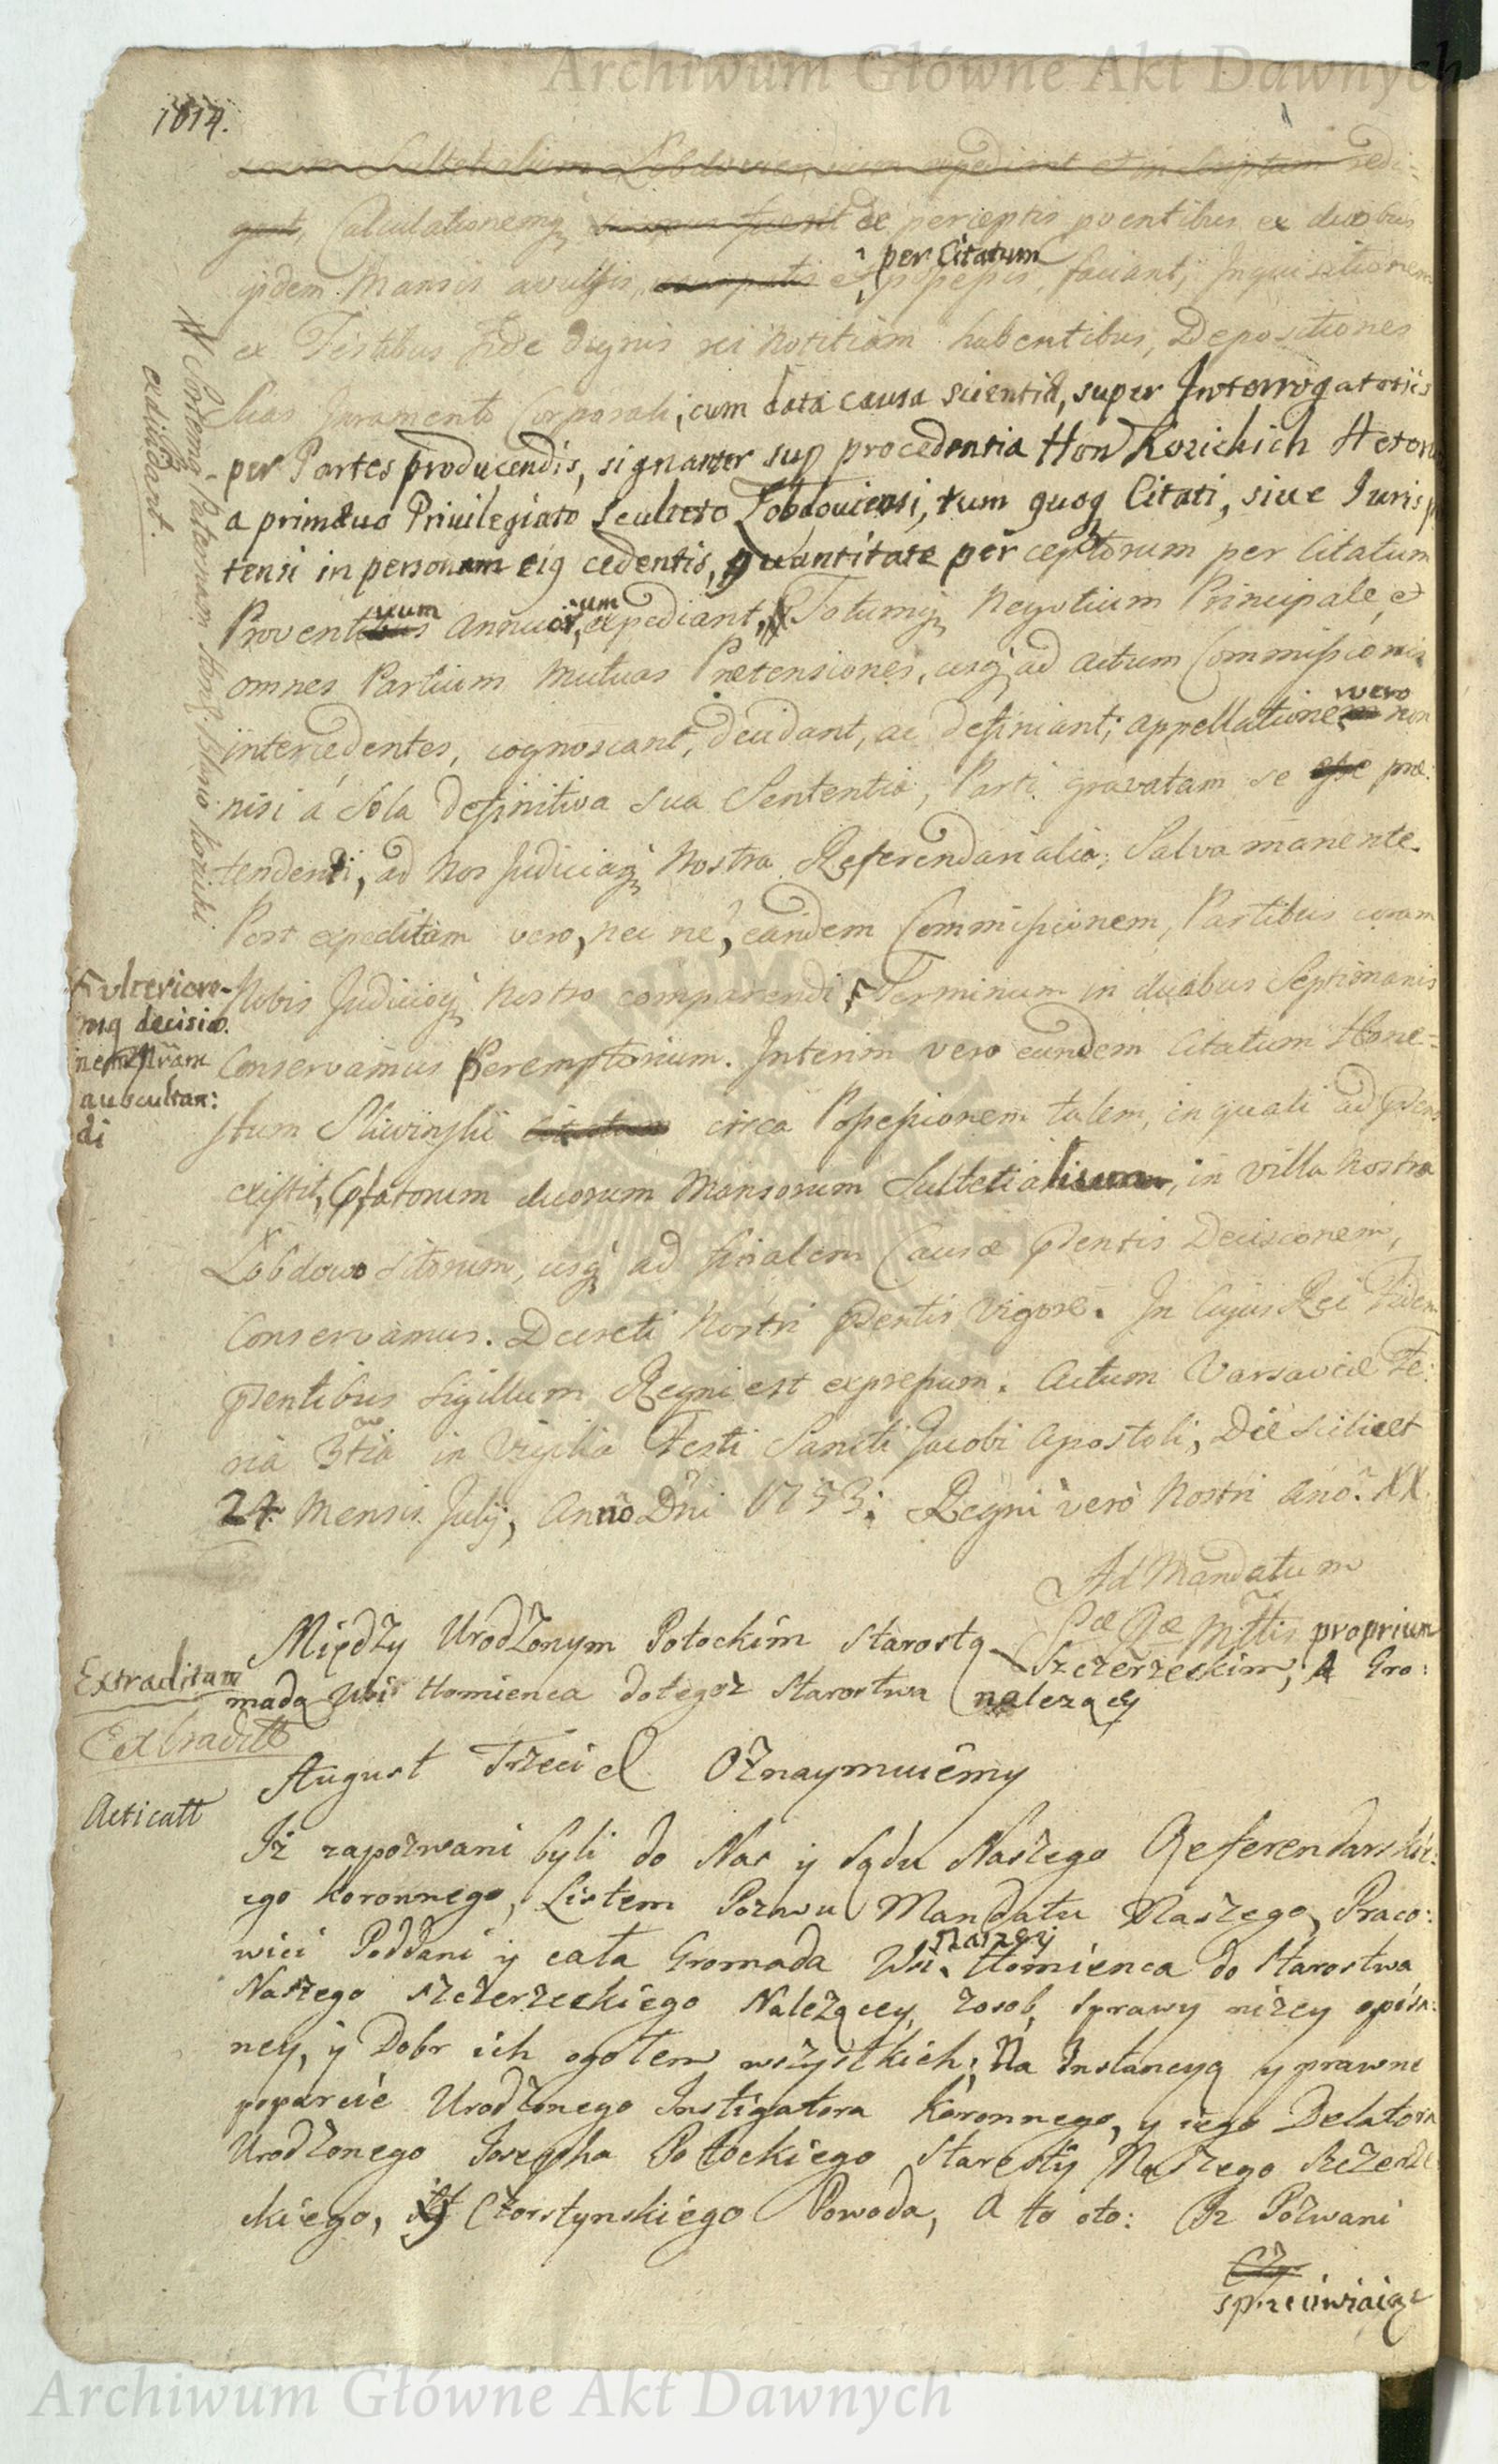 Archiwum Główne Akt Dawnych
1614.
Sultetialium Lobdoviensium expediant et in scriptum redi-
gant, Calculationemq de perceptis proventibus ex duobus
per Citatum
ijsdem Mansis avulsis, et possessis, faciant, Inquisitionem
ex Testibus fide dignis rei notitiam habentibus, Depositiones
suas Juramento Corporali, cum data causa scientiæ, super Interrogatoriis
per Partes producendis, signanter sup procedentia Hon Kozickich
a primævo Privilegiato Sculteto Lobdoviensi, tum quoq Citati, sive Juris
tensi in personam eiq cedentis, quantitate perceptorum per Citatum
Proventuum Annuorum, expediant, Totumq Negotium Principale, et
omnes Partium Mutuas Prætensiones, usq ad actum Commissionis
intercedentes, cognoscant, decidant, ac definiant; appellatione vero non
nisi a sola definitiva sua Sententia, Parti gravatam se esse præ:
tendenti, ad Nos Judiciaq Nostra Referendarialia; Salva manente.
Post expeditam vero, nec ne, eandem Commissionem, Partibus coram
Nobis Judicioq Nostro comparendi, Terminum in duabus Septimanis
Conservamus Peremptorium. Interim vero eundem Citatum Hone-
stum Sliwinski circa Possessionem talem, in quali ad præsens
existit, duorum Mansorum Sultetialium, in villa Nostra
Lobdowo sitorum, usq ad finalem Causæ præsentis Decisionem,
Conservamus. Decreti Nostri præsentis vigore. In Cujus Rei Fidem
præsentibus Sigillum Regni est expressum. Actum Varsaviæ Fe:
ria 3tia in Vigilia Festi Sancti Jacobi Apostoli, Die scilicet
24. Mensis July, Anno Dni 1753: Regni vero Nostri Ano. XX.
ulteriore-
mq decisio.
nem nram
auscultan:
di
Ad Mandatum
Sæ Ræ Mttis proprium
Między Urodzonym Potockim Starostą Szczerzeckim, A Gro:
madą Wsi Humienca do tegoz Starostwa nalezącey
Extraditum
Extradtt
Acticatt
August Trzeci & Oznaymuiemy
Iż zapozwani byli do Nas y Sądu Naszego Referendarskie:
ego Koronnego, Listem Pozwu Mandatu Naszego, Praco:
wici Poddani y cała Gromada Wsi Naszey Humienca do Starostwa
Naszego Szczerzeckiego Nalezącey, z osob, Sprawy nizey opisa:
ney, y Dobr ich ogołem wszystkich; Na Instancyą y prawne
poparcie Urodzonego Instigatora Koronnego, y iego Delatora
Urodzonego Jozepha Potockiego Starosty Naszego Szczerze
ckiego, Czorstynskiego Powoda, A to oto: Iz Pozwani
sprzeciwiaiąc
Archiwum Główne Akt Dawnych